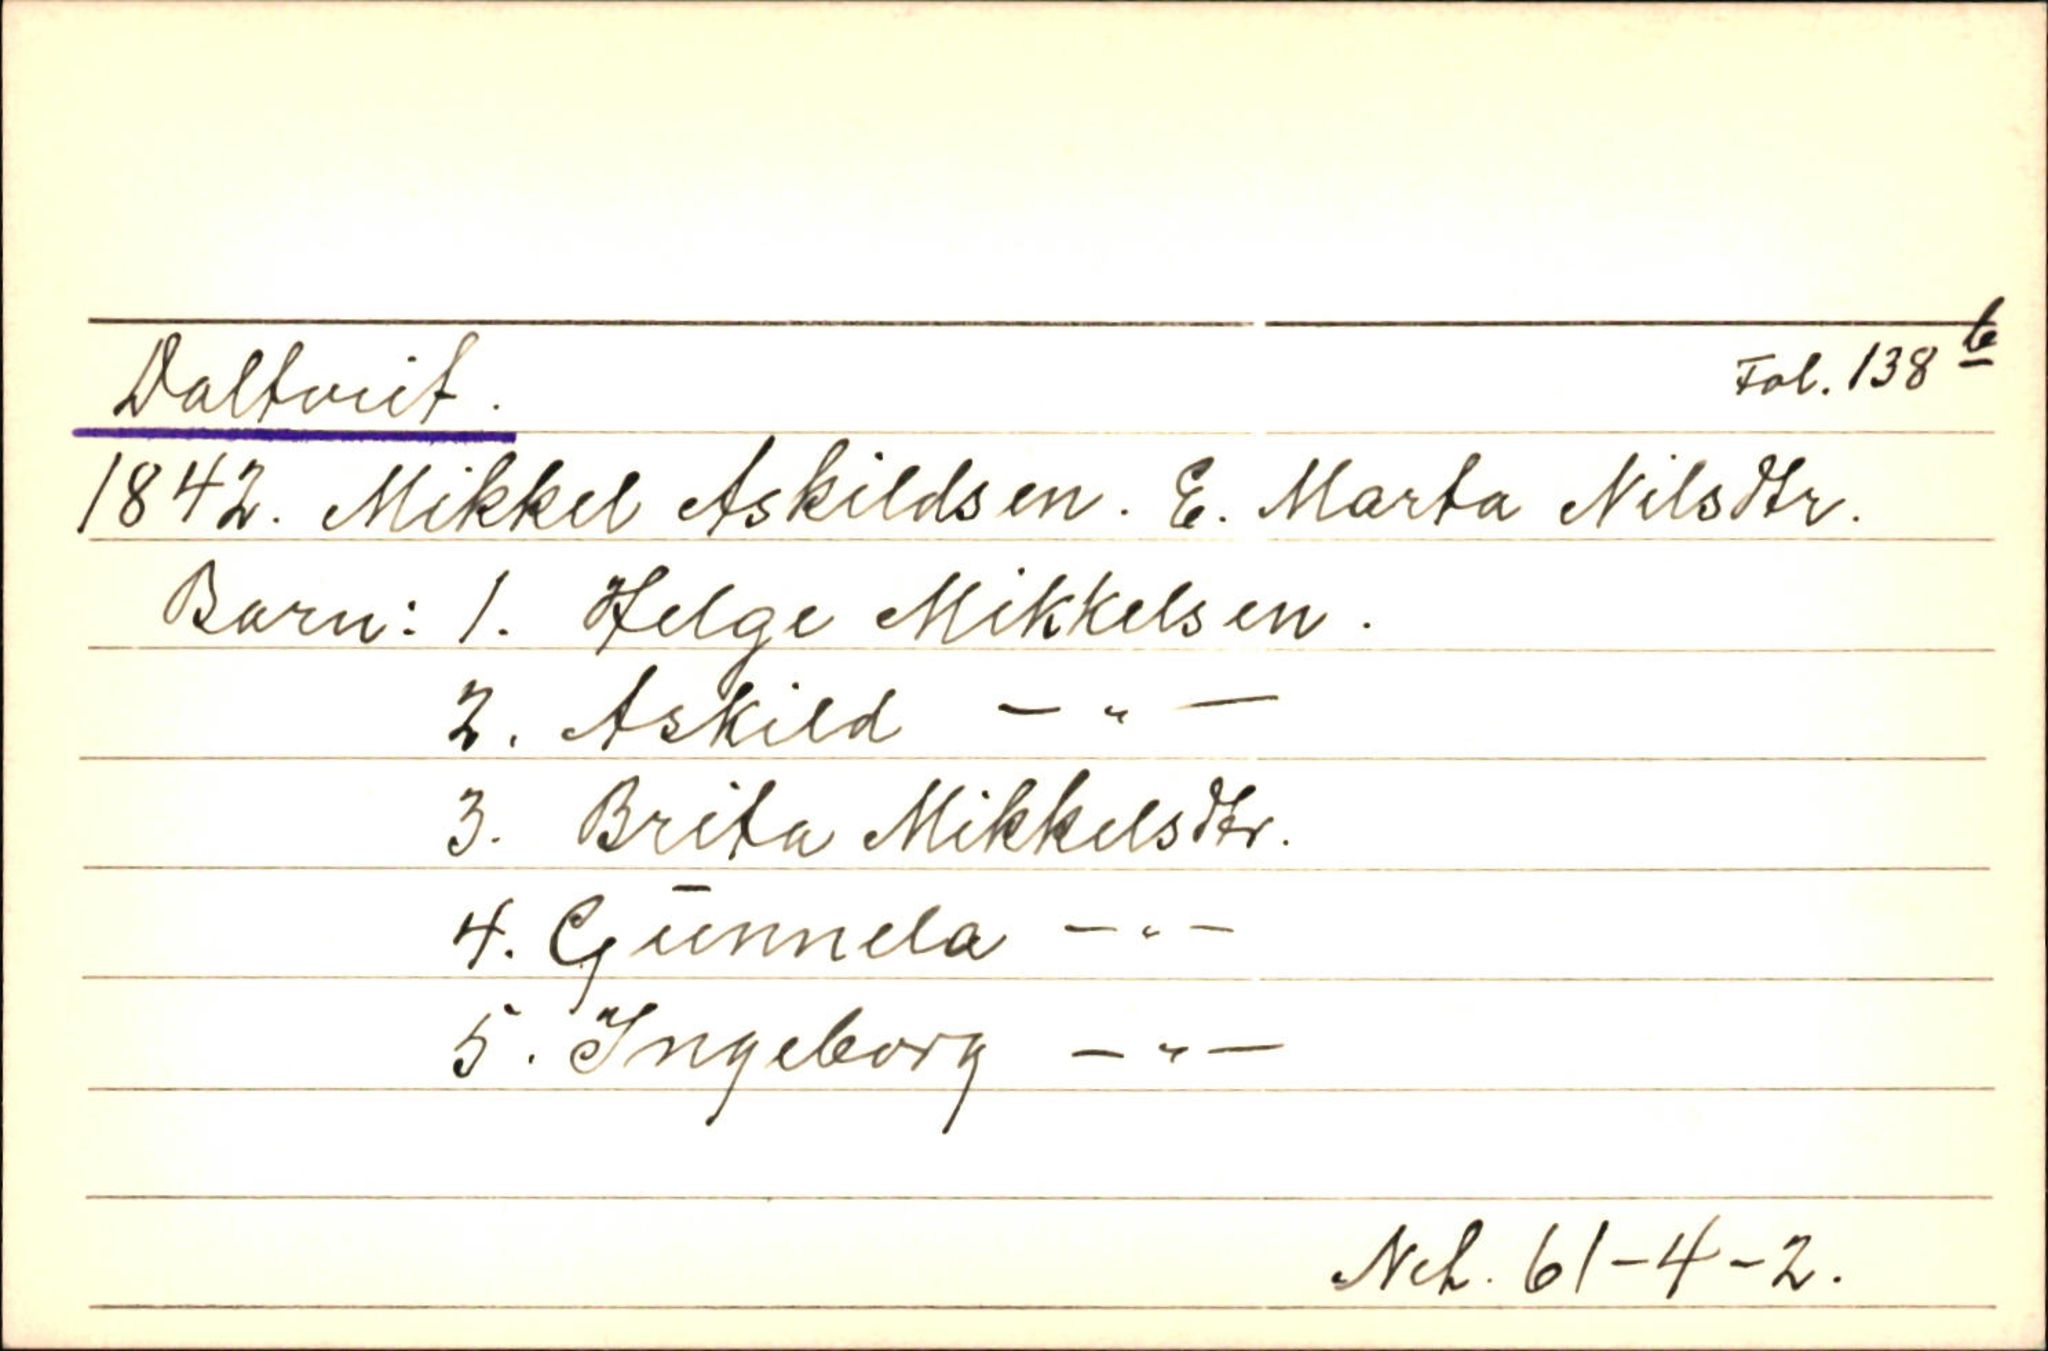 Daltveit. Fol. 138 b
1842. Mikkel Askildsen. E. Marta Nilsdtr.
Barn: 1. Helge Mikkelsen.
2. Askild - " -
3. Brita Mikkelsdtr.
4. Gunnela - " -
5. Ingeborg - " -
Neh. 61-4-2.